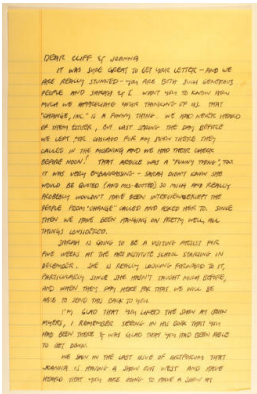 DEAR CLIFF & JOANNA
IT WAS SURE GREAT TO GET YOUR LETTER - AND WE
ARE REALLY STUNNED - YOU ARE BOTH SUCH GENEROUS
PEOPLE AND SARAH & I WANT YOU TO KNOW HOW
MUCH WE APPRECIATE YOUR THINKING OF US. THAT
"CHANGE, INC." IS A FUNNY THING. WE HAD NEVER HEARD
OF THEM EITHER, BUT LAST SPRING THE DAY BEFORE
WE LEFT FOR CHICAGO FOR MY SHOW THERE THEY
CALLED IN THE MORNING AND WE HAD THEIR CHECK
BEFORE NOON! THAT ARTICLE WAS A "FUNNY THING", TOO
IT WAS VERY EMBARRASSING - SARAH DIDN'T KNOW SHE
WOULD BE QUOTED (AND MIS-QUOTED) SO MUCH AND REALLY
PROBABLY WOULDN'T HAVE BEEN INTERVIEWED EXCEPT THE
PEOPLE FROM "CHANGE" CALLED AND ASKED HER TO. SINCE
THEN WE HAVE BEEN HANGING ON PRETTY WELL, ALL
THINGS CONSIDERED.
SARAH IS GOING TO BE A VISITING ARTIST FOR
FIVE WEEKS AT THE ART INSTITUTE SCHOOL STARTING IN
DECEMBER. SHE IS REALLY LOOKING FORWARD TO IT,
PARTICULARLY SINCE SHE HASN'T TAUGHT MUCH BEFORE,
AND WHEN THEY PAY HERE FOR THAT WE WILL BE
ABLE TO SEND THIS BACK TO YOU.
I'M GLAD THAT YOU LIKED THE SHOW AT
MYERS, I REMEMBER SEEING IN HIS BOOK THAT YOU
HAD BEEN THERE & WAS GLAD THAT YOU HAD BEEN ABLE
TO GET DOWN.
WE SAW IN THE LAST ISSUE OF ARTFORUM THAT
JOANNA IS HAVING A SHOW OUT WEST AND HAVE
HEARD THAT YOU ARE GOING TO HAVE A SHOW AT